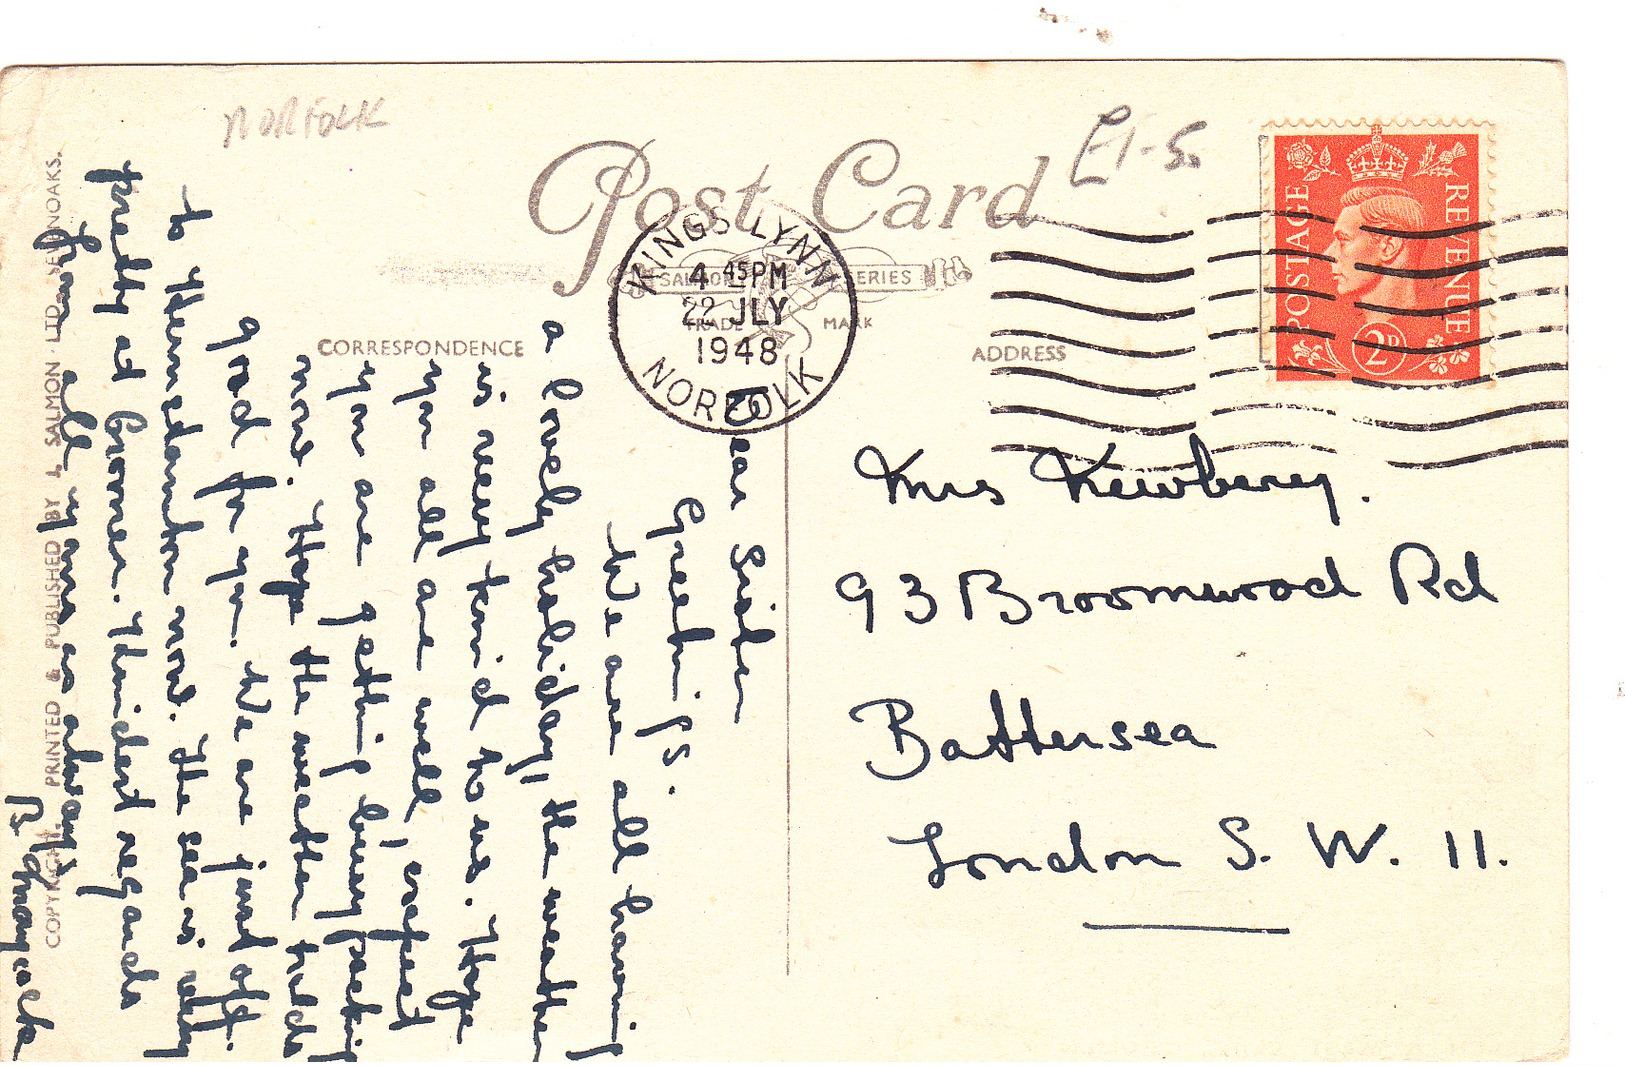 NORFOLK
£1-50
Post Card
SALMON SERIES
TRADE MARK
KINGS LYNN
4 45PM
22 JLY
1948
NORFOLK
CORRESPONDENCE
ADDRESS
POSTAGE
REVENUE
2D
Dear Sister
Greetings.
We are all having
a lovely holiday, the weather
is very kind to us. Hope
you all are well, expect
you are getting busy packing
more. Hope the weather holds
good for you. We are just off
to Hunstanton now. The sea is very
pretty at Cromer. Kindest regards
from all yours as always
COPYRIGHT. PRINTED & PUBLISHED BY J. SALMON LTD. SEVENOAKS.
Mrs Newberry.
93 Broomwood Rd
Battersea
London S. W. 11.